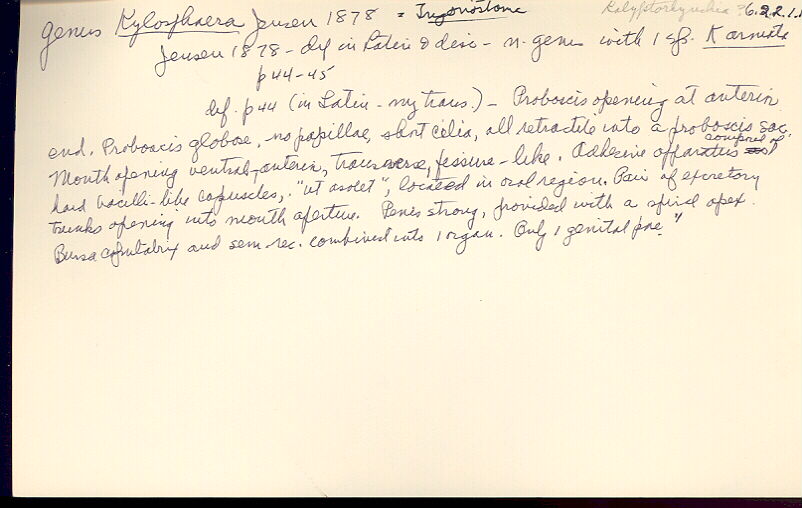 Kalyptorhynchia ?6.2.2.1.
genus Kylosphaera Jensen 1878 = Trigonostoma
Jensen 1878 - def in Latin & disc - n. genus with 1 sp. K armata
p 44-45
def. p 44 (in Latin - my trans.) - Proboscis opening at anterior
end. Proboscis globose, no papillae, short cilia, all retractile into a proboscis sac.
Mouth opening ventral-anterior, transverse, fissure-like. Adhesive apparatus composed of
hard bacilli-like capsules, "ut asolet", located in oral region. Pair of excretory
trunks opening into mouth aperture. Penis strong, provided with a spiral apex.
Bursa copulatrix and sem. rec. combined into 1 organ. Only 1 genital pore"